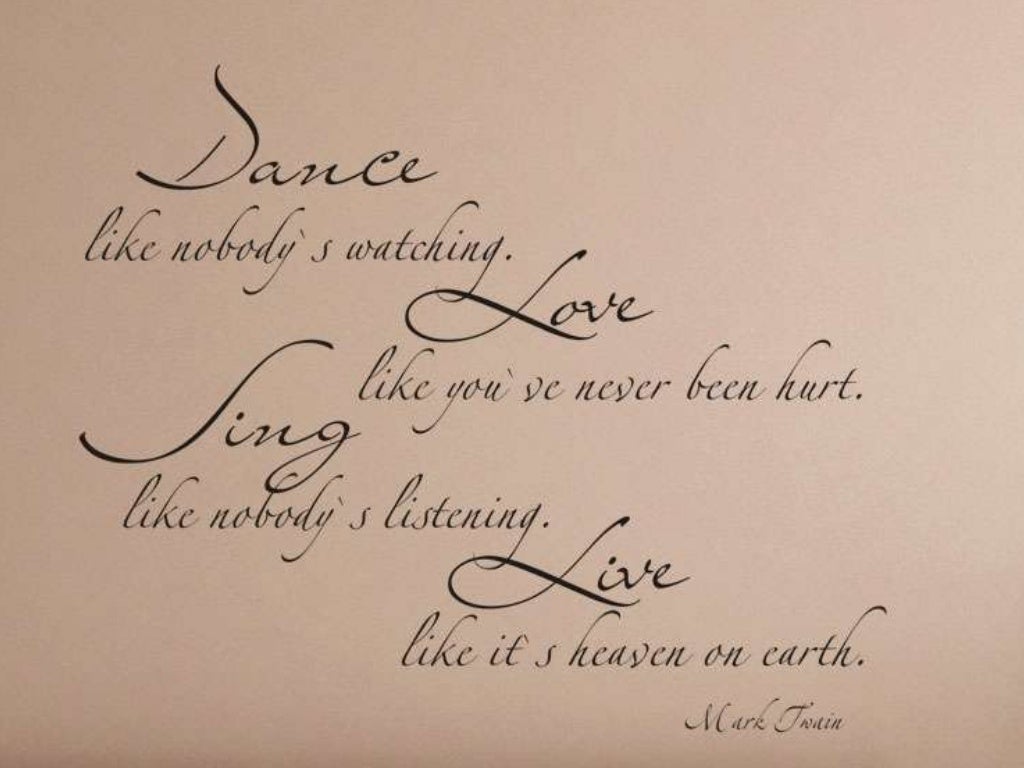 Dance
like nobody`s watching.
Love
like you`ve never been hurt.
Sing
like nobody`s listening.
Live
like it`s heaven on earth.
Mark Twain